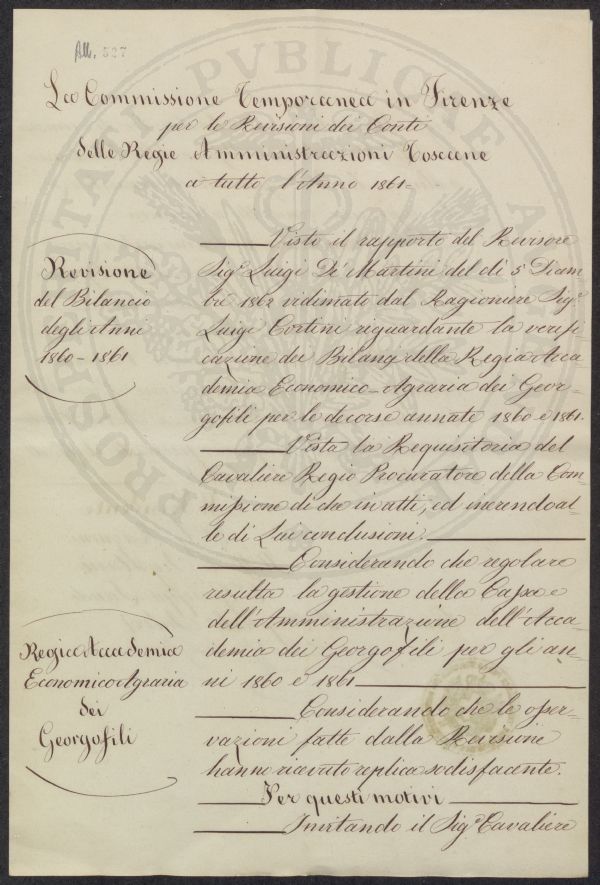 All. 527
La Commissione Temporanea in Firenze
per le Revisioni dei Conti
delle Regie Amministrazioni Toscane
a tutto l'Anno 1861=
Revisione
del Bilancio
degli Anni
1860-1861
Visto il rapporto del Revisore
Sig.e Luigi De' Martini del dì 5 Dicem=
bre 1862 vidimato dal Ragioniere Sig.e
Luigi Cortini riguardante la verifi=
cazione dei Bilanci della Regia Acca=
demia Economico-Agraria dei Geor=
gofili per le decorse annate 1860 e 1861.
Vista la Requisitoria del
Cavaliere Regio Procuratore della Com=
missione di che in atti, ed inerendo al=
le di Lui conclusioni.
Considerando che regolare
resulta la gestione della Cassa e
dell'Amministrazione dell'Acca=
demia dei Georgofili per gli an=
ni 1860 e 1861
Regia Accademia
Economico Agraria
dei
Georgofili
Considerando che le osser=
vazioni fatte dalla Revisione
hanno ricevuto replica sodisfacente.
Per questi motivi
Invitando il Sig.e Cavaliere
PROSPERITATI PUBLICAE AUGENDAE